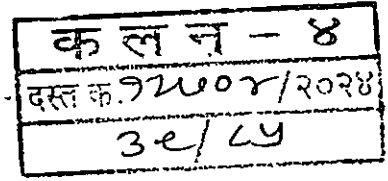 क ल न - ४
दस्त क. १२७०२/२०२४
३९/८५